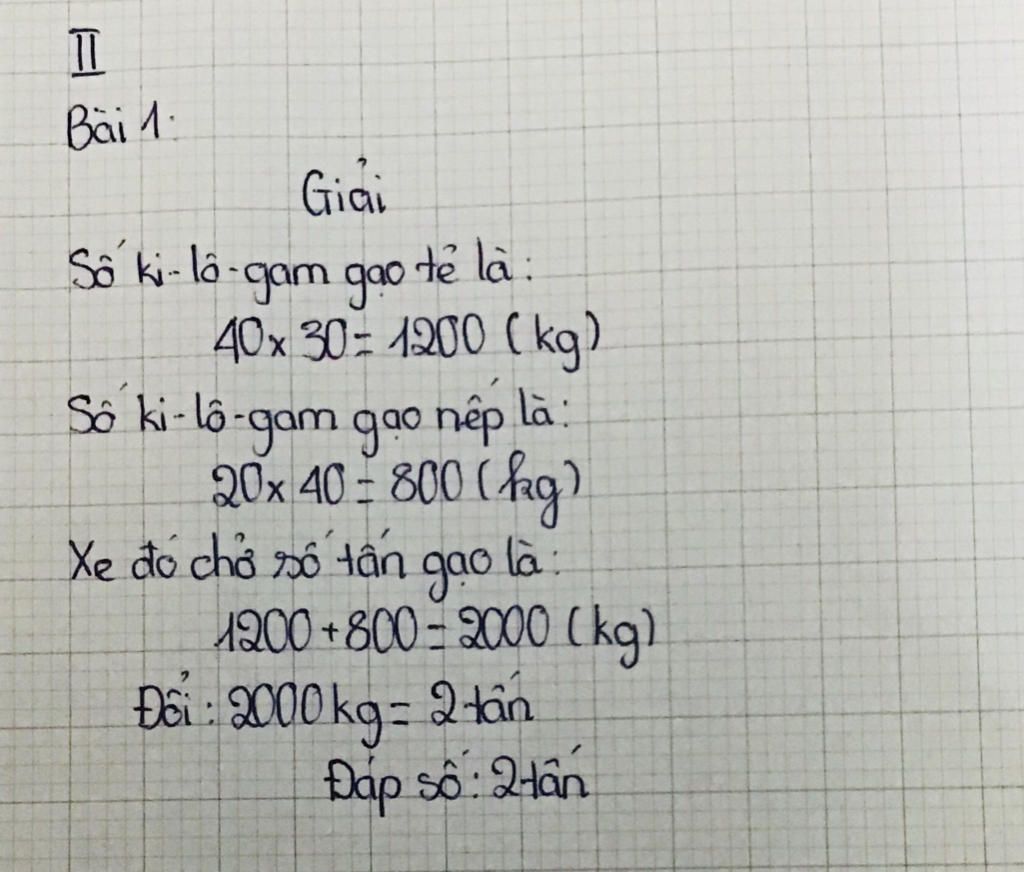 II
Bài 1:
Giải
Số ki-lô-gam gạo tẻ là:
40 x 30 = 1200 (kg)
Số ki-lô-gam gạo nếp là:
20 x 40 = 800 (kg)
Xe đó chở số tấn gạo là:
1200 + 800 = 2000 (kg)
Đổi: 2000 kg = 2 tấn
Đáp số: 2 tấn